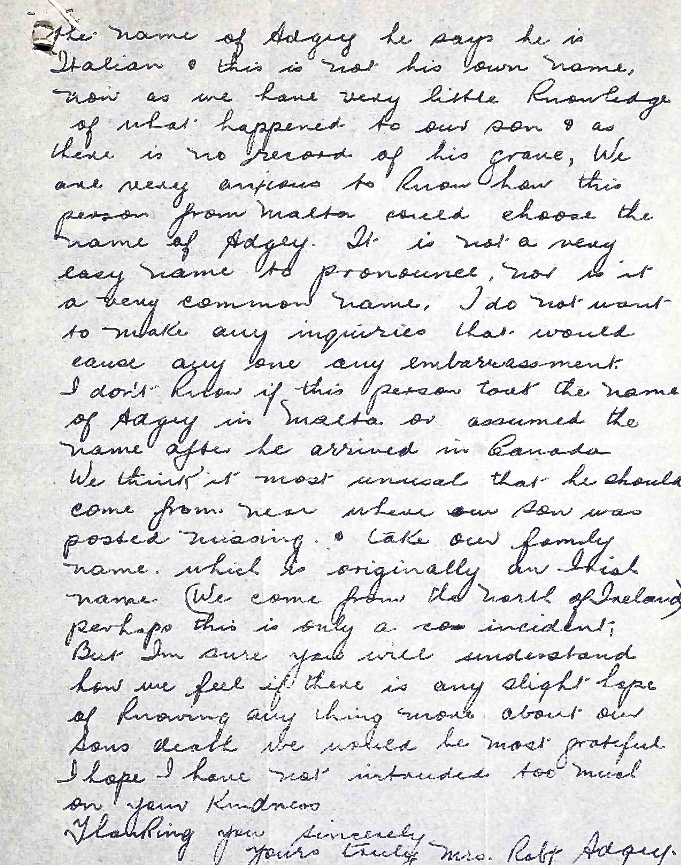 the name of Adgey he says he is
Italian & this is not his own name,
now as we have very little knowledge
of what happened to our son & as
there is no record of his grave, We
are very anxious to know how this
person from Malta could choose the
name of Adgey. It is not a very
easy name to pronounce, nor is it
a very common name. I do not want
to make any inquiries that would
cause any one any embarrassment.
I don't know if this person took the name
of Adgey in Malta or assumed the
name after he arrived in Canada
We think it most unusal that he should
come from near where our son was
posted missing. & take our family
name. which is originally an Irish
name. (We come from the North of Ireland)
perhaps this is only a co incident,
But I'm sure you will understand
how we feel if there is any slight hope
of knowing any thing more about our
sons death we would be most grateful
I hope I have not intruded too much
on your Kindness
Thanking you sincerely
yours truly Mrs. Robt Adgey.